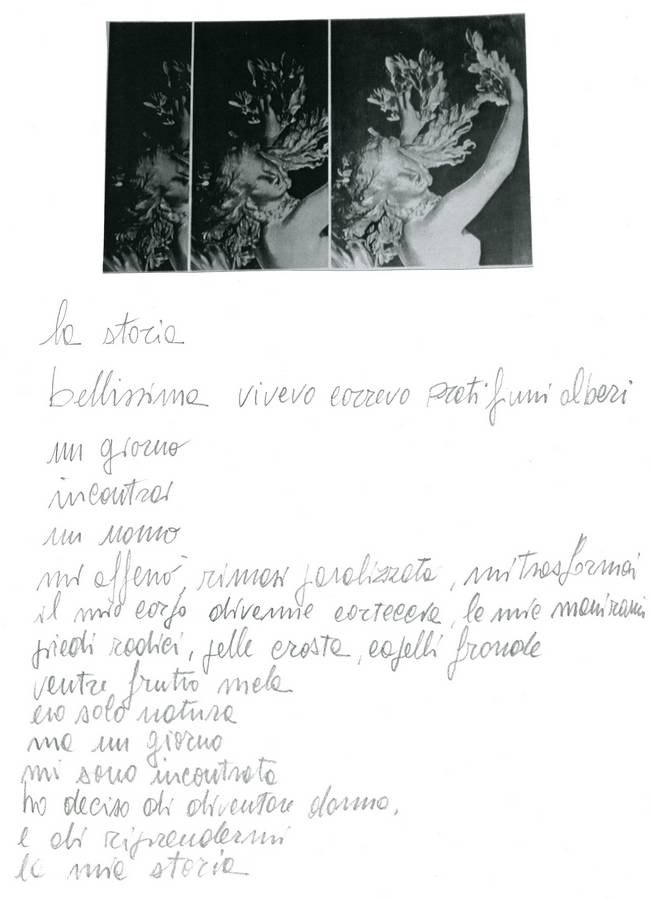 la storia
bellissima vivevo correvo prati fiumi alberi
un giorno
incontrai
un uomo
mi afferrò, rimasi paralizzata, mi trasformai
il mio corpo divenne corteccia, le mie mani rami
piedi radici, pelle crosta, capelli fronde
ventre frutto mela
ero solo natura
ma un giorno
mi sono incontrata
ho deciso di diventare donna,
e di riprendermi
la mia storia